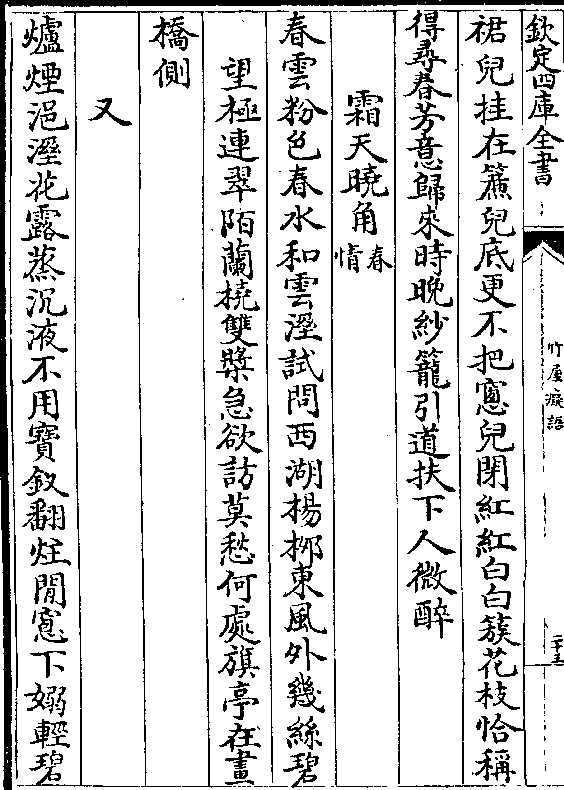 欽定四庫全書
竹屋癡語
二十五
裙兒挂在簾兒底更不把窻兒閉紅紅白白簇花枝恰稱
得尋春芳意歸來時晚紗籠引道扶下人微醉
霜天曉角春情
春雲粉色春水和雲溼試問西湖楊柳東風外幾絲碧
望極連翠陌蘭橈雙槳急欲訪莫愁何處旗亭在畫
橋側
又
爐煙浥溼花露蒸沉液不用寶釵翻炷閒窻下嫋輕碧